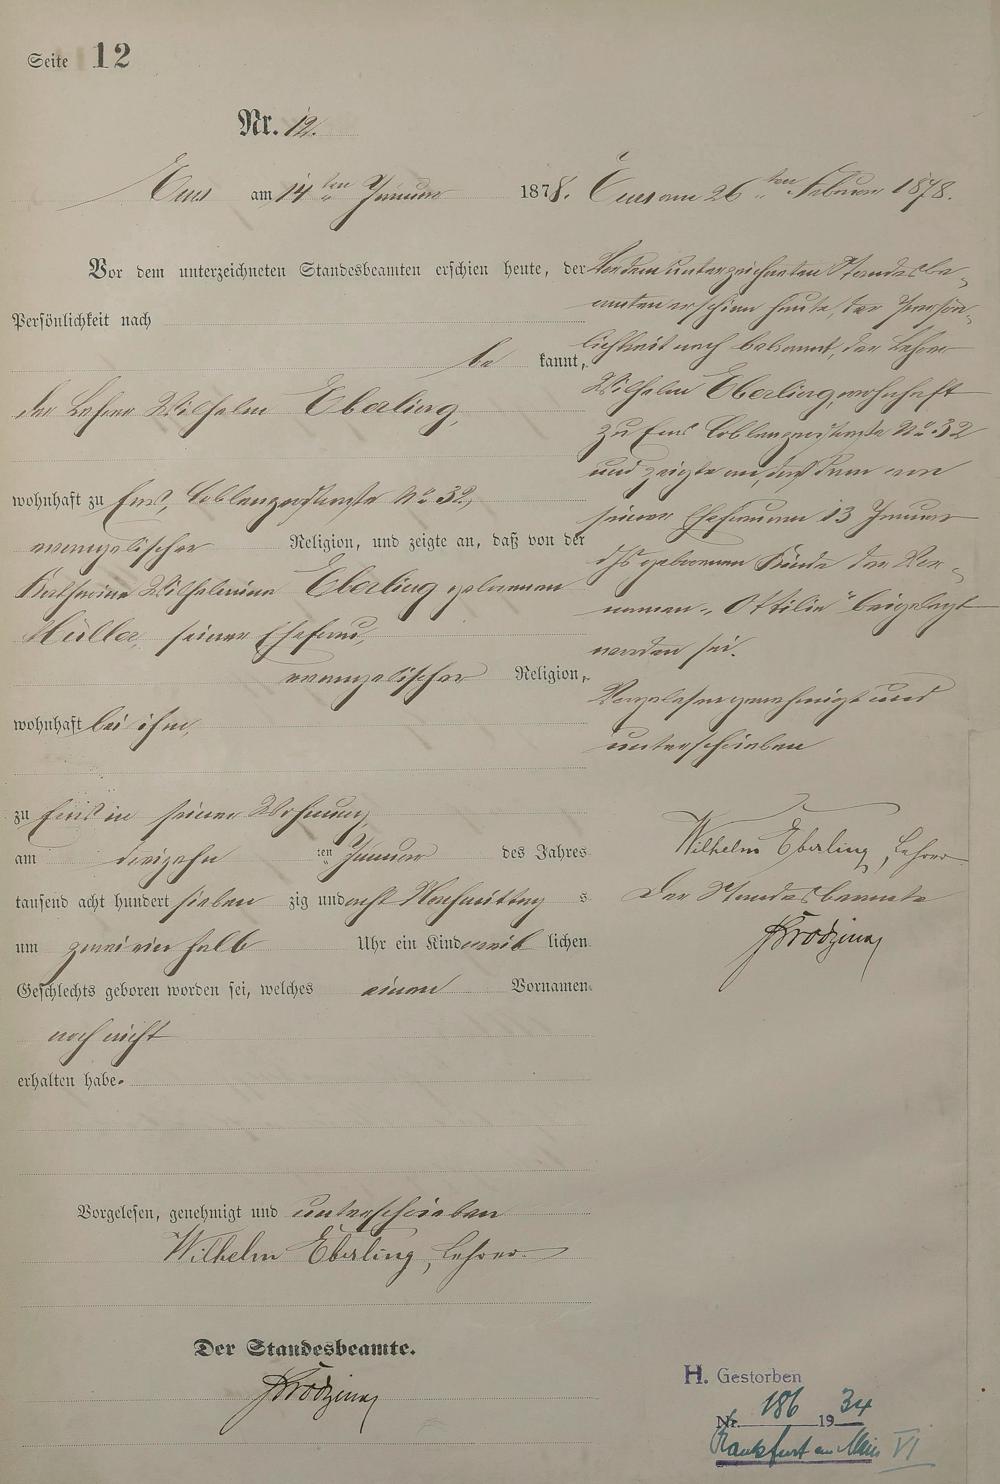 Seite 12
Nr. 12.
Ems am 14 ten Januar 1878.
Vor dem unterzeichneten Standesbeamten erschien heute, der
Persönlichkeit nach
be kannt,
der Lehrer Wilhelm Eberling,
wohnhaft zu Ems, Coblenzerstraße No 32,
evangelischer Religion, und zeigte an, daß von der
Katharina Wilhelmina Eberling geborenen
Müller, seiner Ehefrau,
evangelischer Religion,
wohnhaft bei ihm,
zu Ems in seiner Wohnung,
am dreizehn ten Januar des Jahres
tausend acht hundert sieben zig und acht Nachmittag s
um zwei ein halb Uhr ein Kind weib lichen
Geschlechts geboren worden sei, welches einen Vornamen
noch nicht
erhalten habe.
Vorgelesen, genehmigt und unterschrieben
Wilhelm Eberling, Lehrer.
Der Standesbeamte.
Ems am 26 ten Februar 1878.
Vor dem unterzeichneten Standesbe-
amten erschien heute, der Persön-
lichkeit nach bekannt, der Lehrer
Wilhelm Eberling, wohnhaft
zu Ems Coblenzerstraße No 32
und zeigte an, daß dem von
seiner Ehefrau am 13 Januar
ds Js geborenen Kinde der Vor-
namen "Ottilie" beigelegt
worden sei.
Vorgelesen genehmigt und
unterschrieben
Wilhelm Eberling, Lehrer
Der Standesbeamte
H. Gestorben
Nr. 186 1934
Frankfurt am Main VI